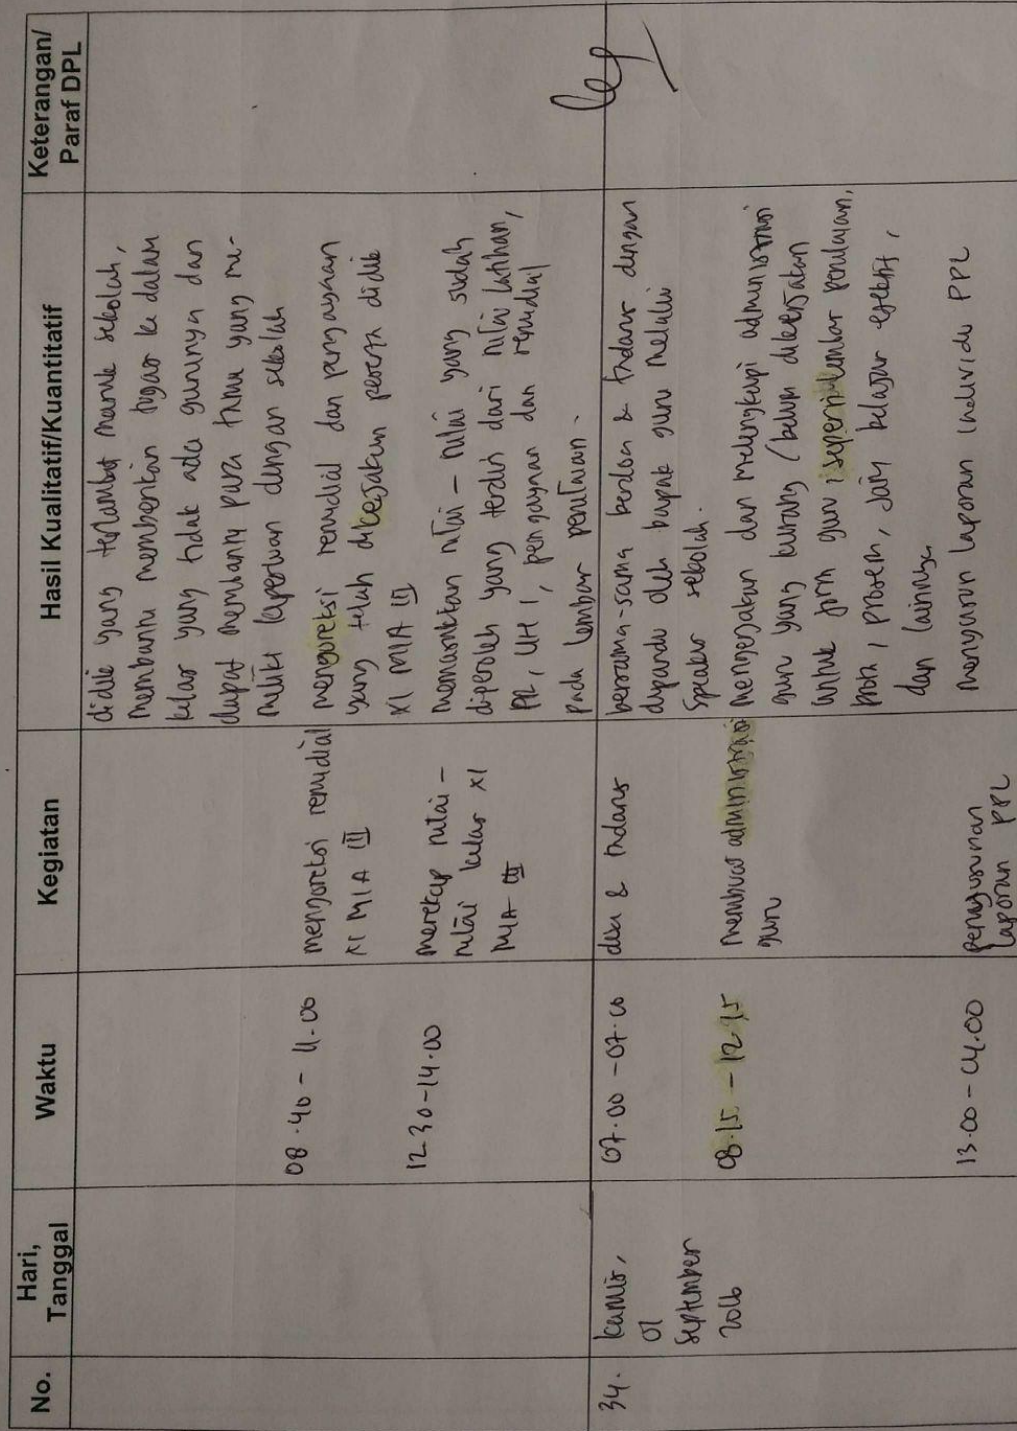 No.
Hari,
Tanggal
Waktu
Kegiatan
Hasil Kualitatif/Kuantitatif
Keterangan/
Paraf DPL
didik yang terlambat masuk sekolah,
membantu memberikan tugas ke dalam
kelas yang tidak ada gurunya dan
dapat membantu para tamu yang me-
miliki keperluan dengan sekolah
08.40 - 11.00
mengoreksi remidial
XI MIA III
mengoreksi remidial dan pengayaan
yang telah dikerjakan peserta didik
XI MIA III
12.30-14.00
merekap nilai -
nilai kelas XI
MIA III
memasukkan nilai - nilai yang sudah
diperoleh yang terdiri dari nilai latihan,
PR, UH 1, pengayaan dan remidial
pada lembar penilaian.
34.
kamis,
01
September
2016
07.00 - 07.10
doa & tadarus
bersama-sama berdoa & tadarus dengan
dipandu oleh bapak guru melalui
speaker sekolah.
08.15 - 12.15
membuat administrasi
guru
mengerjakan dan melengkapi administrasi
guru yang kurang (belum dikerjakan
untuk para guru, seperti lembar penilaian,
prota, prosem, jam belajar efektif,
dan lainnya
13.00 - 14.00
penyusunan
laporan PPL
menyusun laporan individu PPL